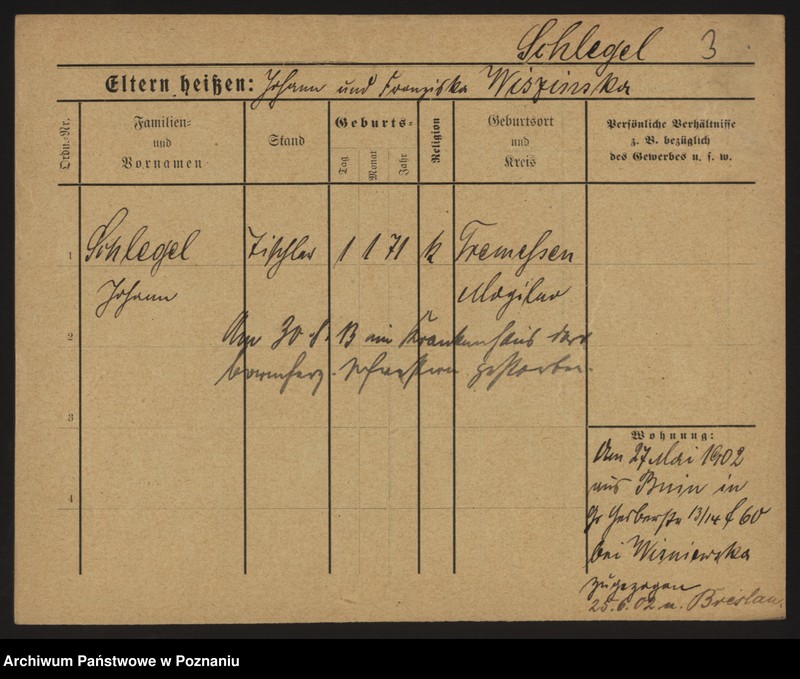 Schlegel 3
Eltern heißen: Johann und Franziska Wiszinska
Ordn.-Nr.
Familien-
und
Vornamen
Stand
Geburts-
Tag
Monat
Jahr
Religion
Geburtsort
und
Kreis
Persönliche Verhältnisse
z. B. bezüglich
des Gewerbes u. s. w.
1 Schlegel Tischler 1 1 71 k Tremessen
Johann Mogilno
2 Am 30.8.13 im Krankenhaus der
barmherz. Schwestern gestorben.
3
4
Wohnung:
Am 27 Mai 1902
aus Bnin in
Gr Gerberstr 13/14 60
bei Wisniewska
zugezogen
25.6.02 n. Breslau.
Archiwum Państwowe w Poznaniu